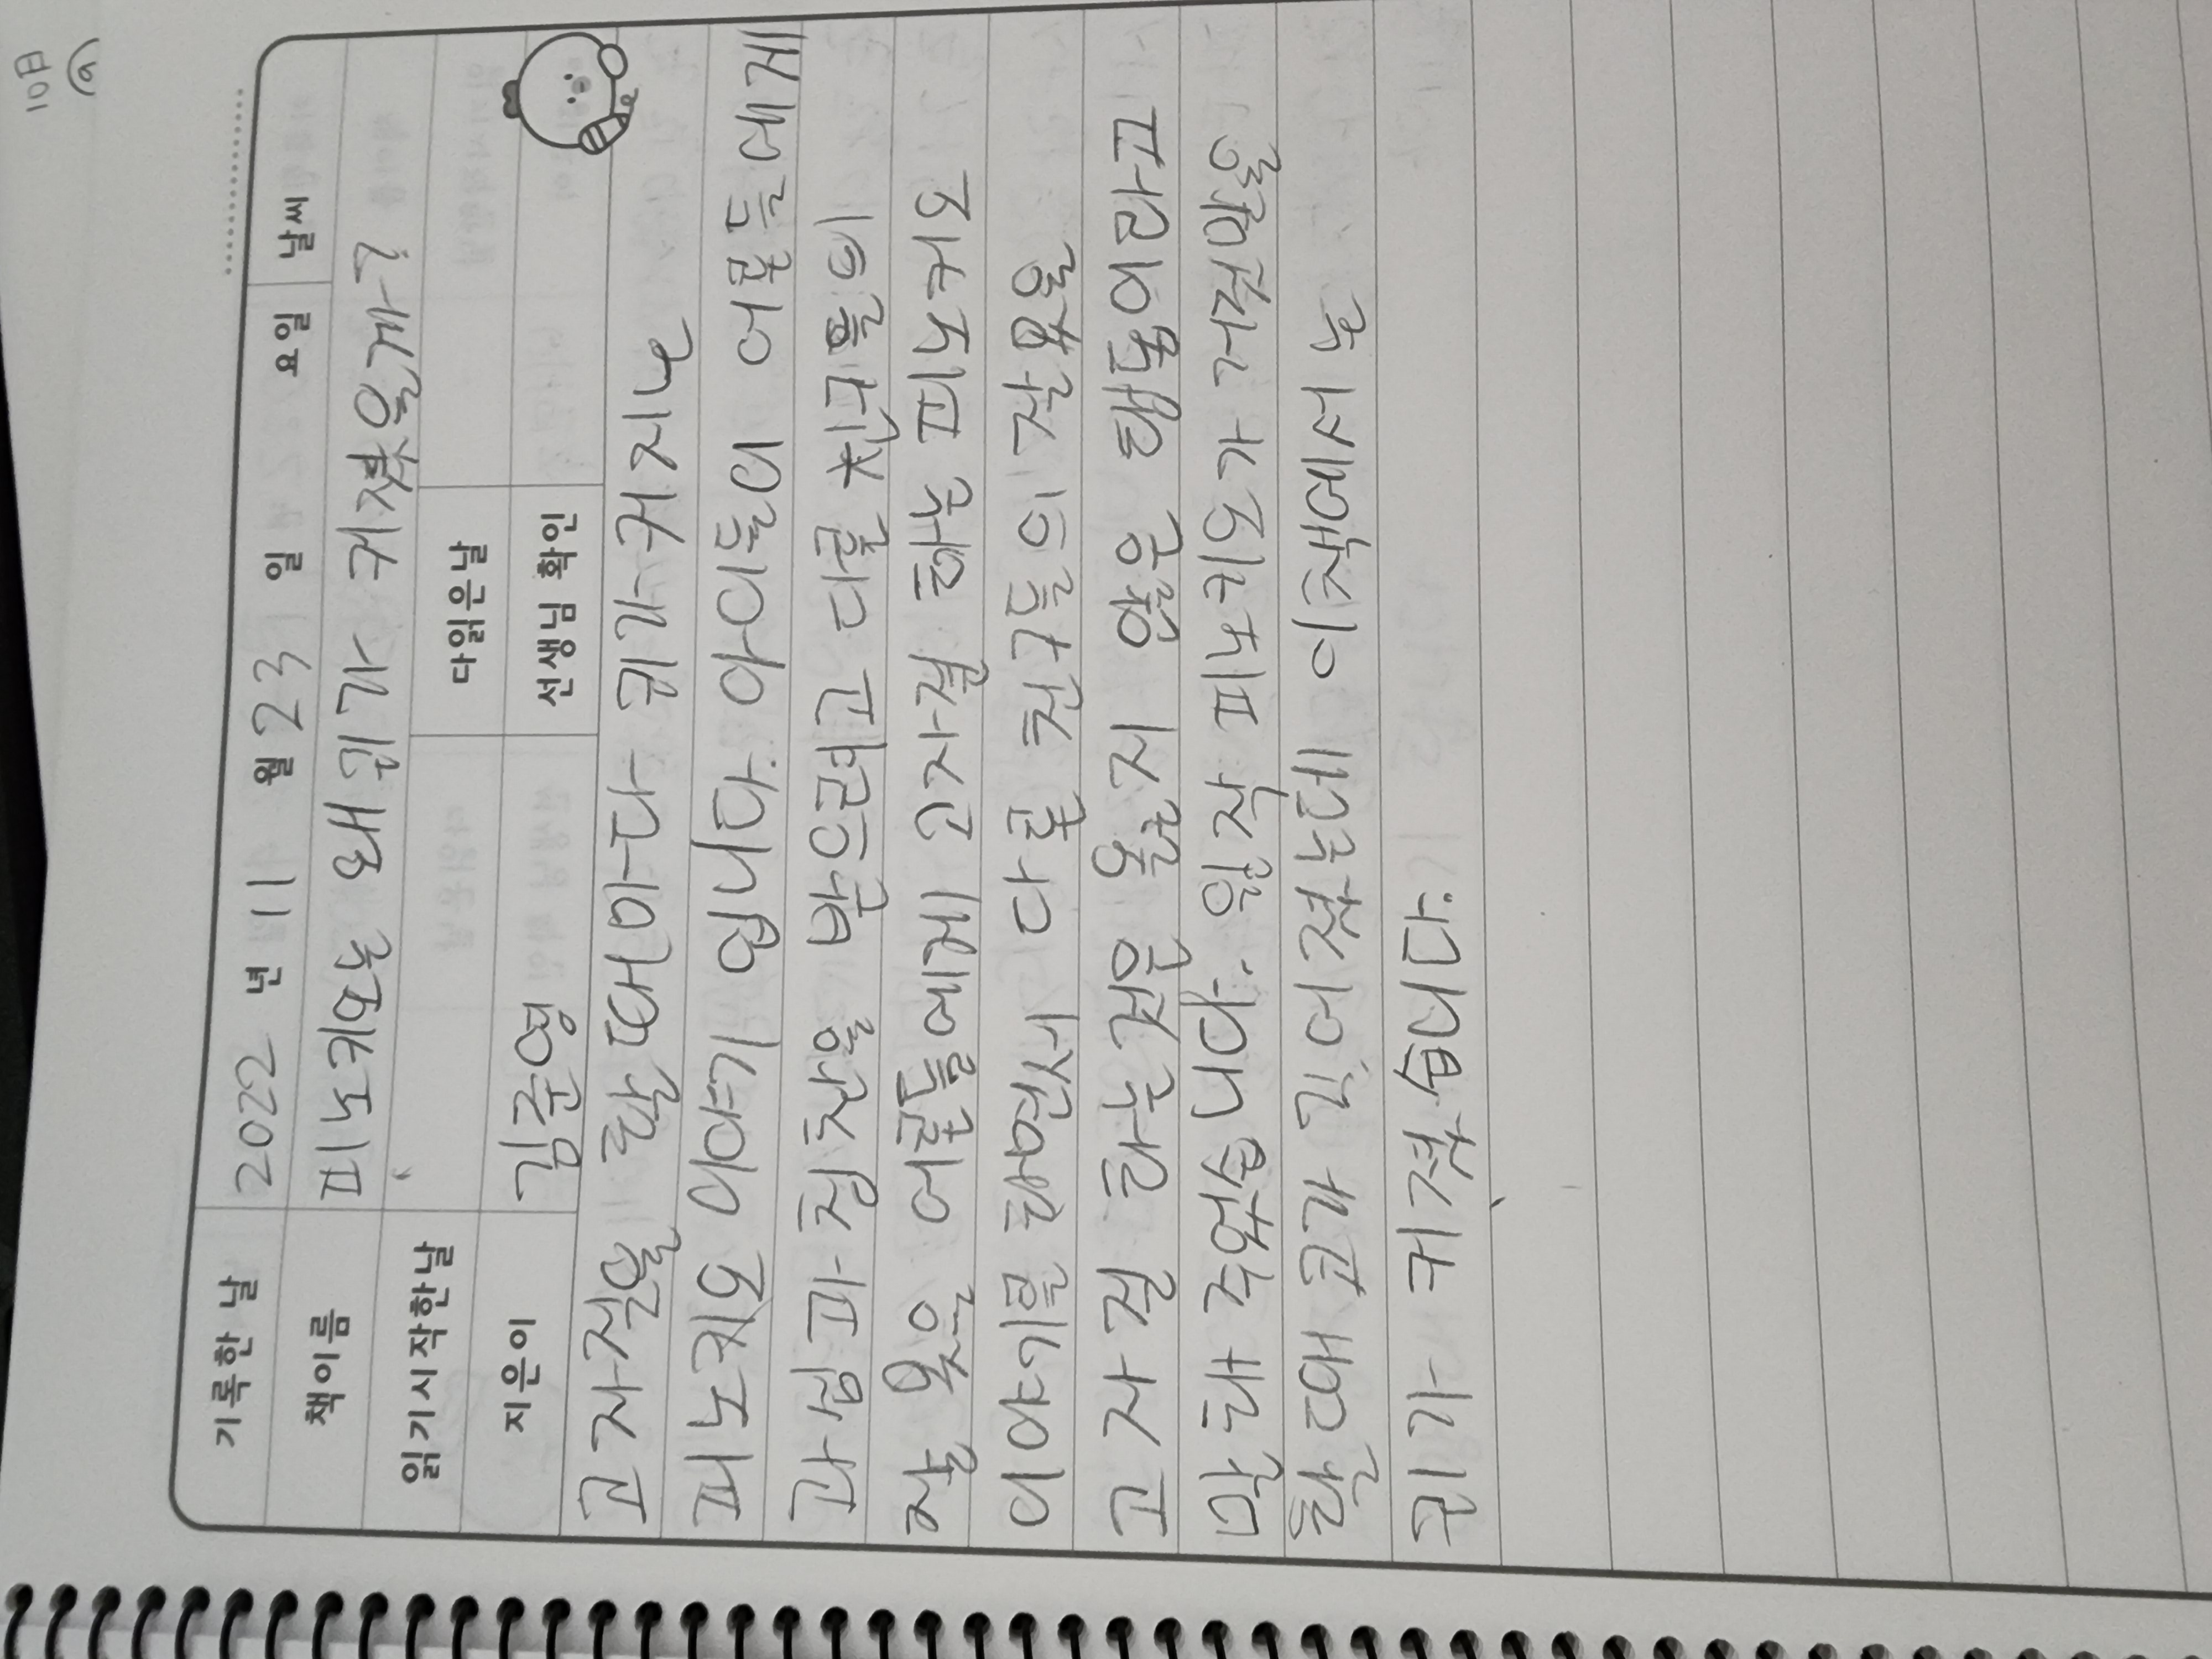 10日
기록한 날 2022 년 11 월 23 일 요일 날씨
책이름 피노키오는 왜 귀가 커졌을까?
읽기시작한날 다읽은날
지은이 김준영 선생님 확인
고자질을 할 때마다 귀가 커지는
피노키오 이야기 입니다. 아이들이 어른들에게
관심과 칭찬을 받으려고 다른 친구들의
잘 못은 어른들에게 고자질 하는 피노키오
이야기를 하면서 다른 친구들의 잘못을
고자질 하는것은 옳은지 않은 행동이라고
말해 주었습니다. 원작 피노키오가 거짓말을
할때 코가 길어졌는데 이책에서는
귀가 커졌습니다.